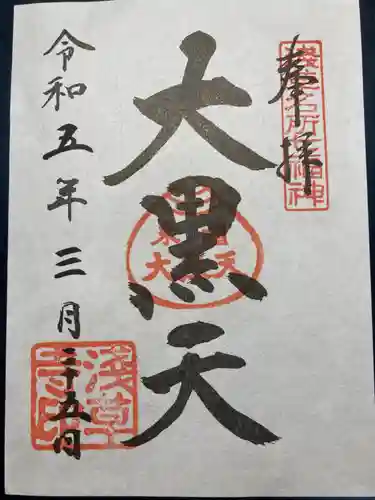 奉拝
浅草名所七福神
大黒天
米びつ
大黒天
令和五年三月二十五日
浅草寺印